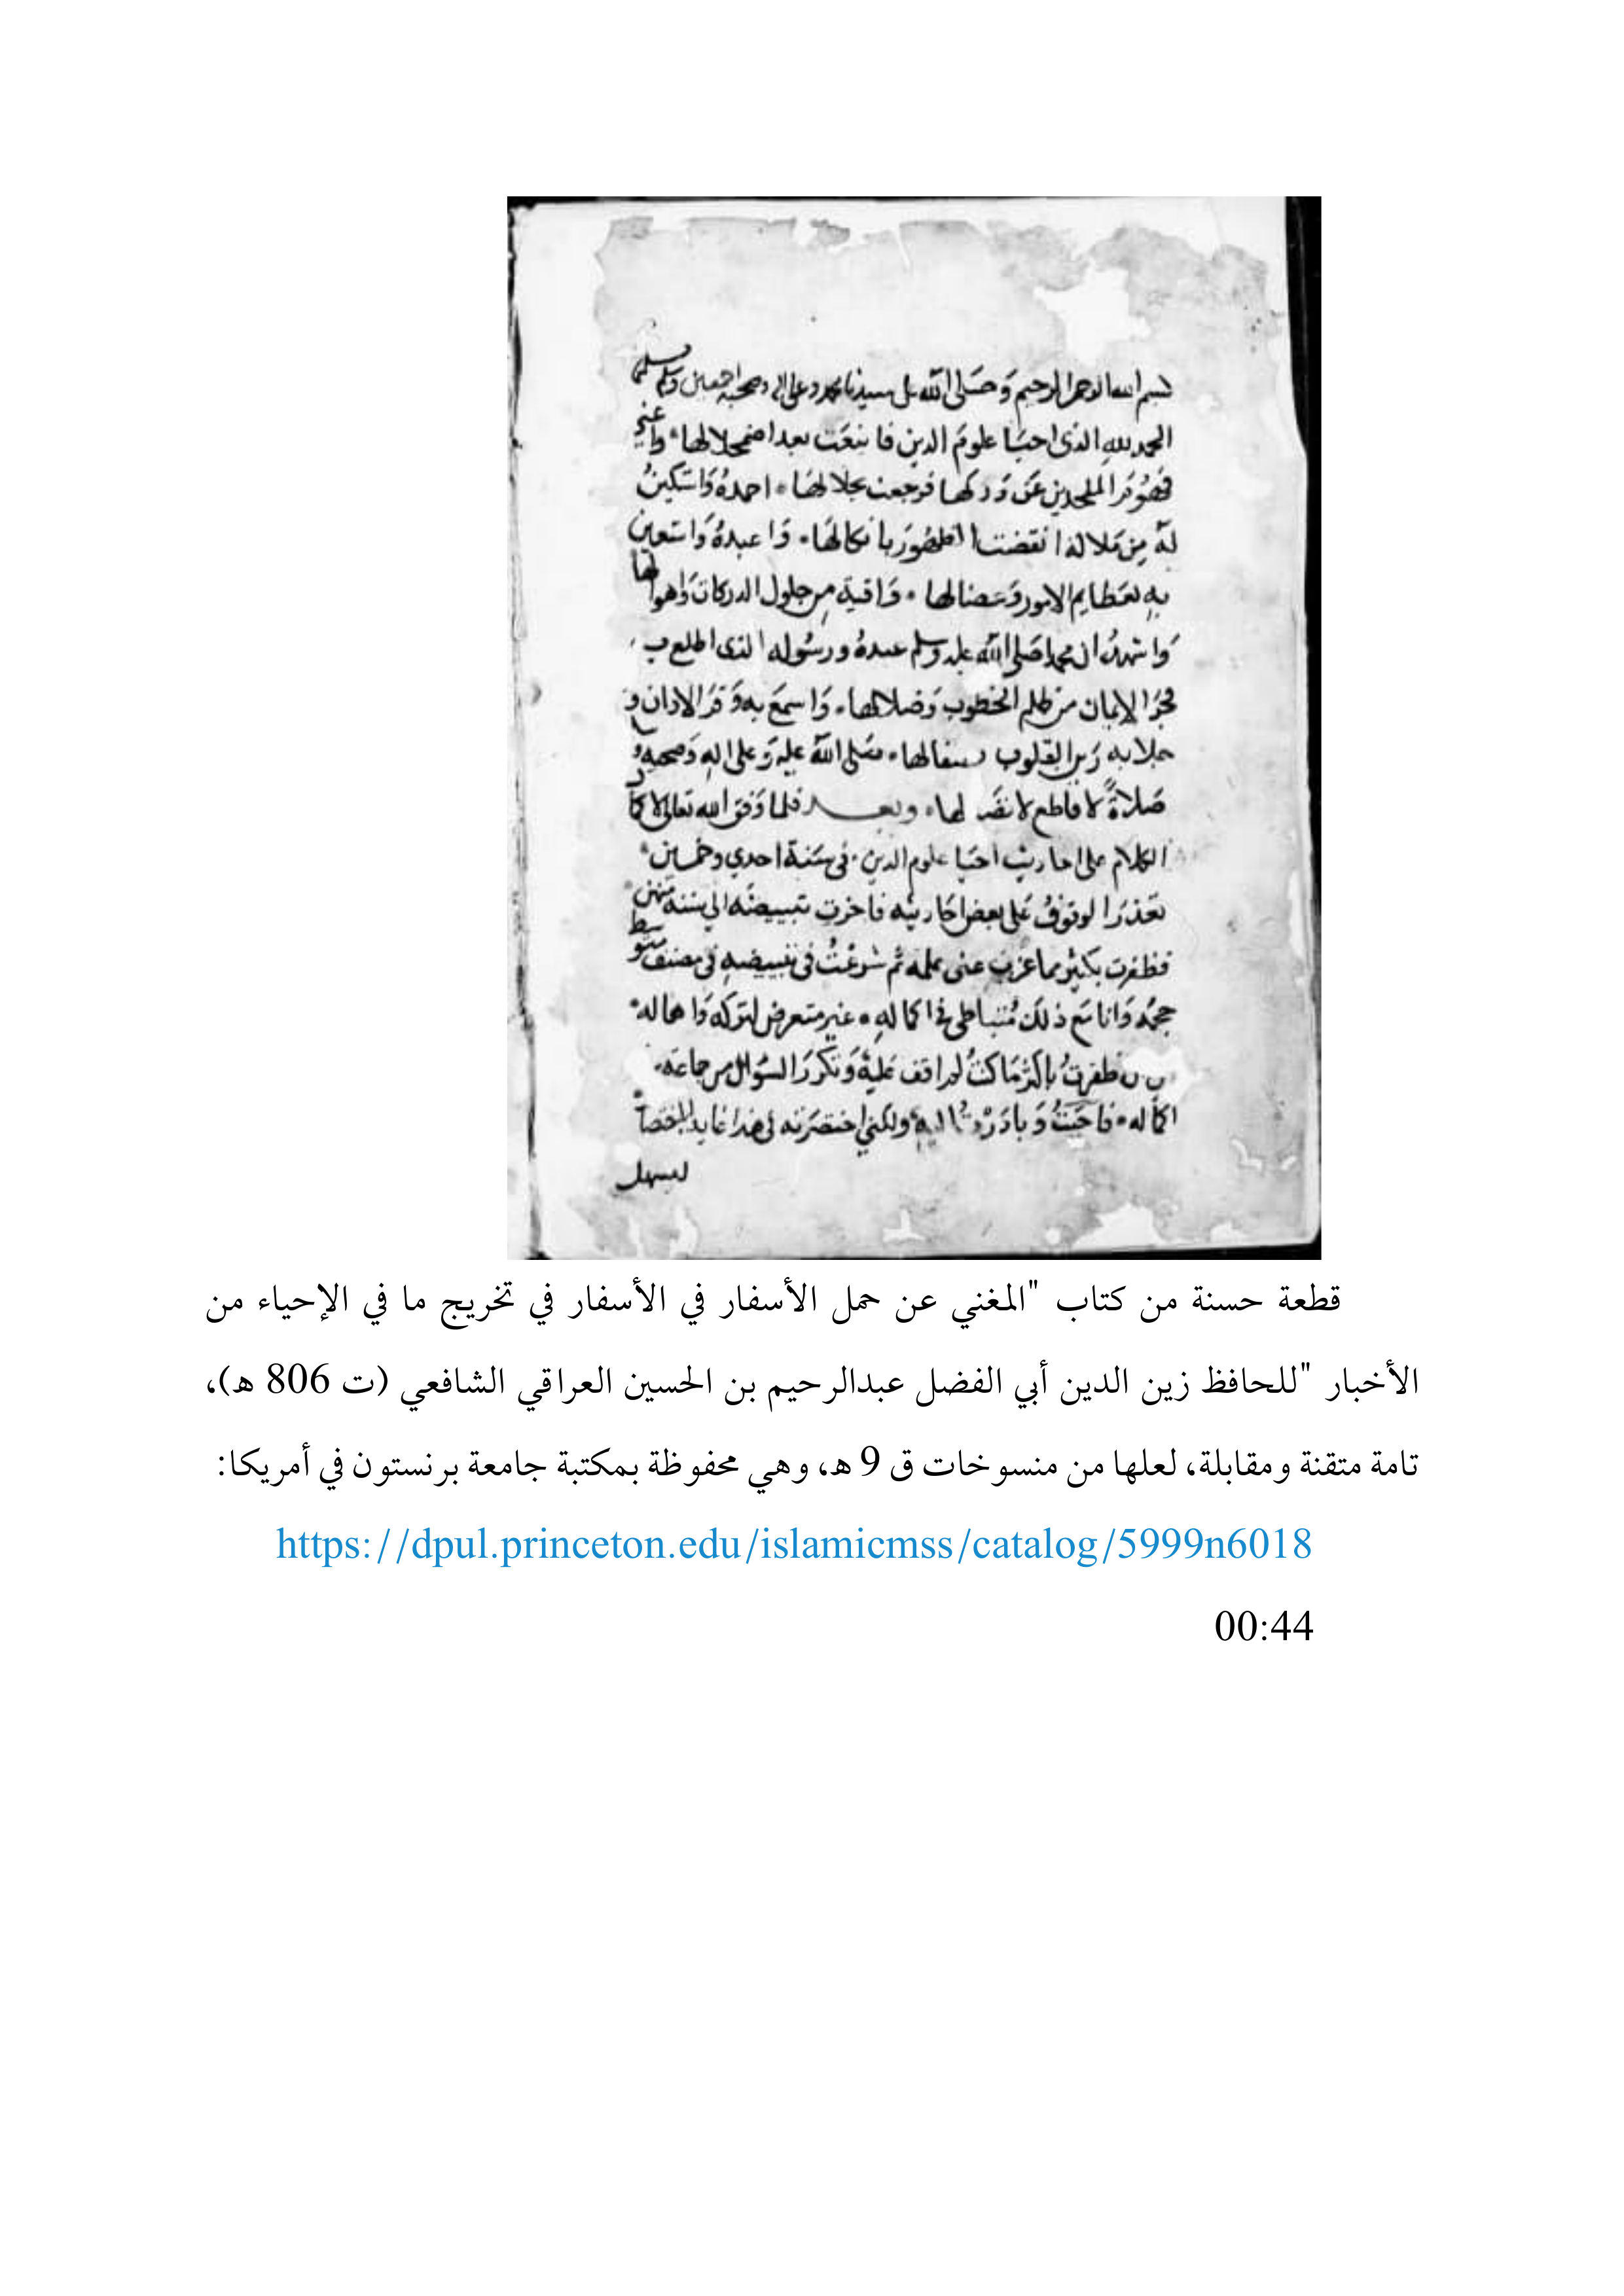 بسم الله الرحمن الرحيم وَصَلى الله على سيدنا محمد وعلى اله وصحبه اجمعين وسلم
الحمد لله الذى احيَا علومَ الدين فاينعَت بعد اضمحلالها وا
الملحدين عَن دَركها فرجعت بجلالهَا احمدهُ وَاستكينُ
لهُ من انقضت الظهُورَ بانكالهَا وَاعبدهُ وَاستعين
بهِ لعَظايم الامور وَعضالها وَاقيه من حلول الدركات وَاهوالها
وَاشهدُ ان محمدا صَلى الله عليه وسلم عبدهُ ورسُوله الذى اطلع ب
فجرَ الايمان من ظلم الخطوب وَضلالها وَاسمعَ به وَقرَ الاذان و
جلا به رَين القلوب صَلى الله عليه وَعلى الهِ وَصحبه و
صَلاةً لا قاطع لا لها وبعد فلما وَفق الله تعالى لاكمال
الكلام على احاديث احيَا علوم الدين فى سَنة احدي وخمسين
تعَذرَ الوقوفُ عَلى بعض احَاديثه فاخرت تبييضَه الي سنة ستين
فظفرت بكثير مما عزب عنى علمه ثم شرعْتُ فى تبييضهِ فى مصنف متوسط
حجمه وَانا مَع ذلكَ مُتباطى فى اكمالهِ غير متعرض لتركه وَاهماله
ظفرتُ باكثر مَا كنتُ لم اقف عَليهْ وَتكررَ السوال من جماعَة
اكماله فاجَبتُ وَبادَرْتُ اليهِ ولكني اختصَرته فى هذا غاية الاختصار
ليسهل
قطعة حسنة من كتاب "المغني عن حمل الأسفار في الأسفار في تخريج ما في الإحياء من
الأخبار "للحافظ زين الدين أبي الفضل عبدالرحيم بن الحسين العراقي الشافعي (ت 806 هـ)،
تامة متقنة ومقابلة، لعلها من منسوخات ق 9 هـ، وهي محفوظة بمكتبة جامعة برنستون في أمريكا:
https://dpul.princeton.edu/islamicmss/catalog/5999n6018
00:44